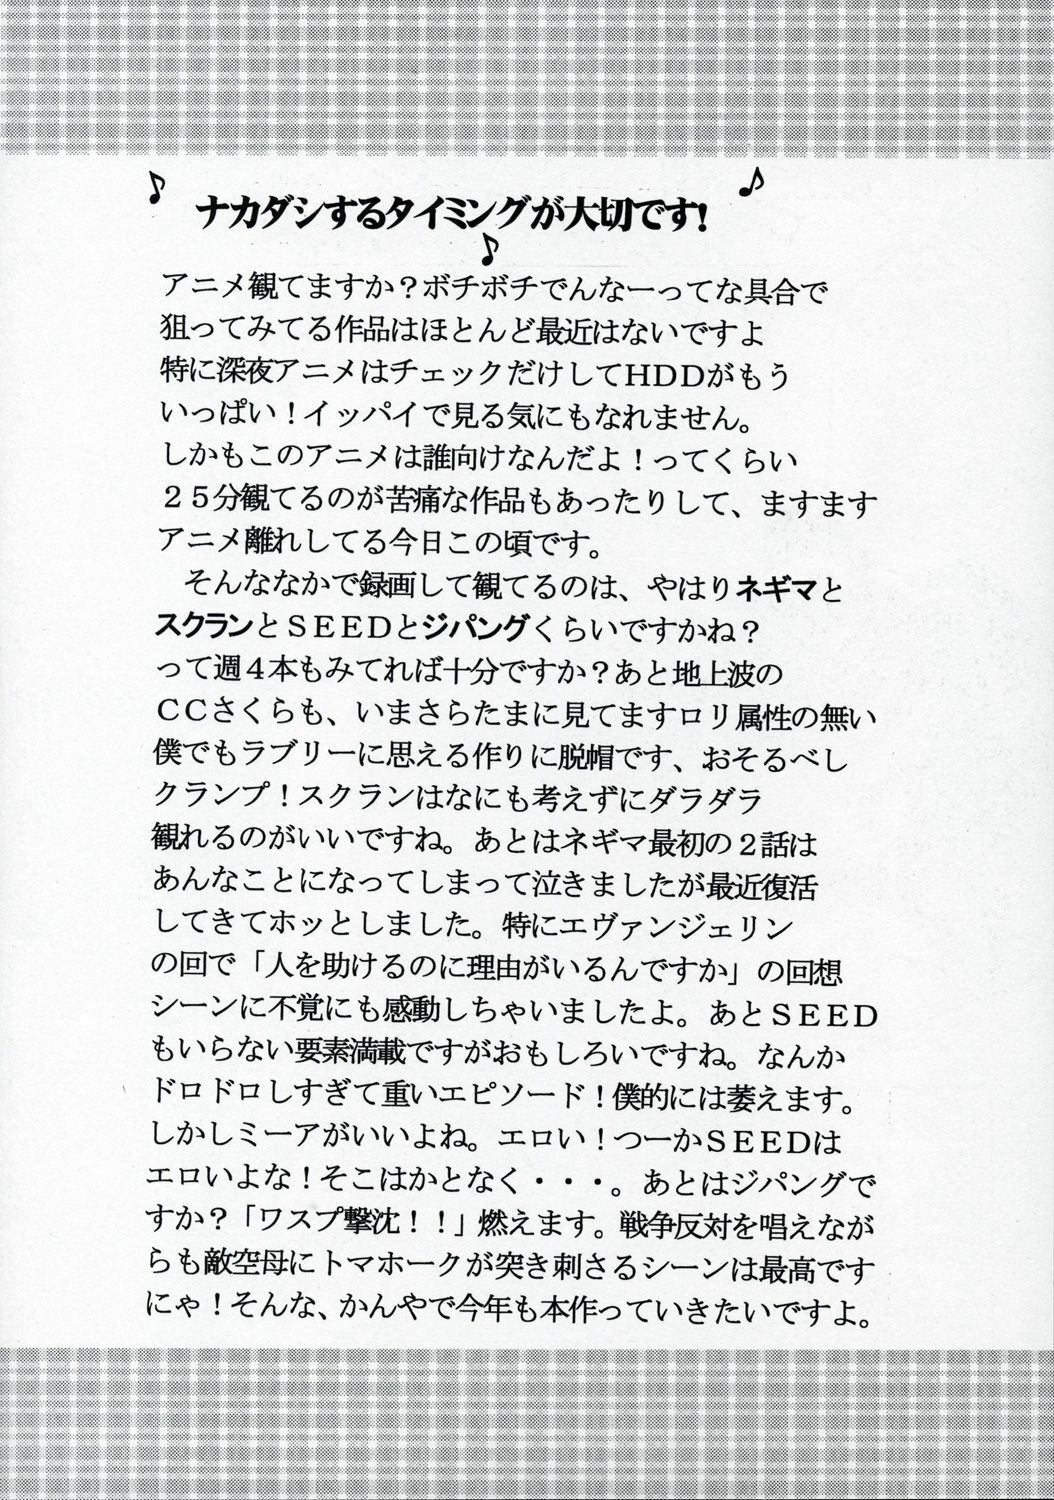 ナカダシするタイミングが大切です!
アニメ観てますか？ボチボチでんなーってな具合で
狙ってみてる作品はほとんど最近はないですよ
特に深夜アニメはチェックだけしてＨＤＤがもう
いっぱい！イッパイで見る気にもなれません。
しかもこのアニメは誰向けなんだよ！ってくらい
２５分観てるのが苦痛な作品もあったりして、ますます
アニメ離れしてる今日この頃です。
　そんななかで録画して観てるのは、やはりネギマと
スクランとＳＥＥＤとジパングくらいですかね？
って週４本もみてれば十分ですか？あと地上波の
ＣＣさくらも、いまさらたまに見てますロリ属性の無い
僕でもラブリーに思える作りに脱帽です、おそるべし
クランプ！スクランはなにも考えずにダラダラ
観れるのがいいですね。あとはネギマ最初の２話は
あんなことになってしまって泣きましたが最近復活
してきてホッとしました。特にエヴァンジェリン
の回で「人を助けるのに理由がいるんですか」の回想
シーンに不覚にも感動しちゃいましたよ。あとＳＥＥＤ
もいらない要素満載ですがおもしろいですね。なんか
ドロドロしすぎて重いエピソード！僕的には萎えます。
しかしミーアがいいよね。エロい！つーかＳＥＥＤは
エロいよな！そこはかとなく・・・。あとはジパングで
すか？「ワスプ撃沈！！」燃えます。戦争反対を唱えなが
らも敵空母にトマホークが突き刺さるシーンは最高です
にゃ！そんな、かんやで今年も本作っていきたいですよ。